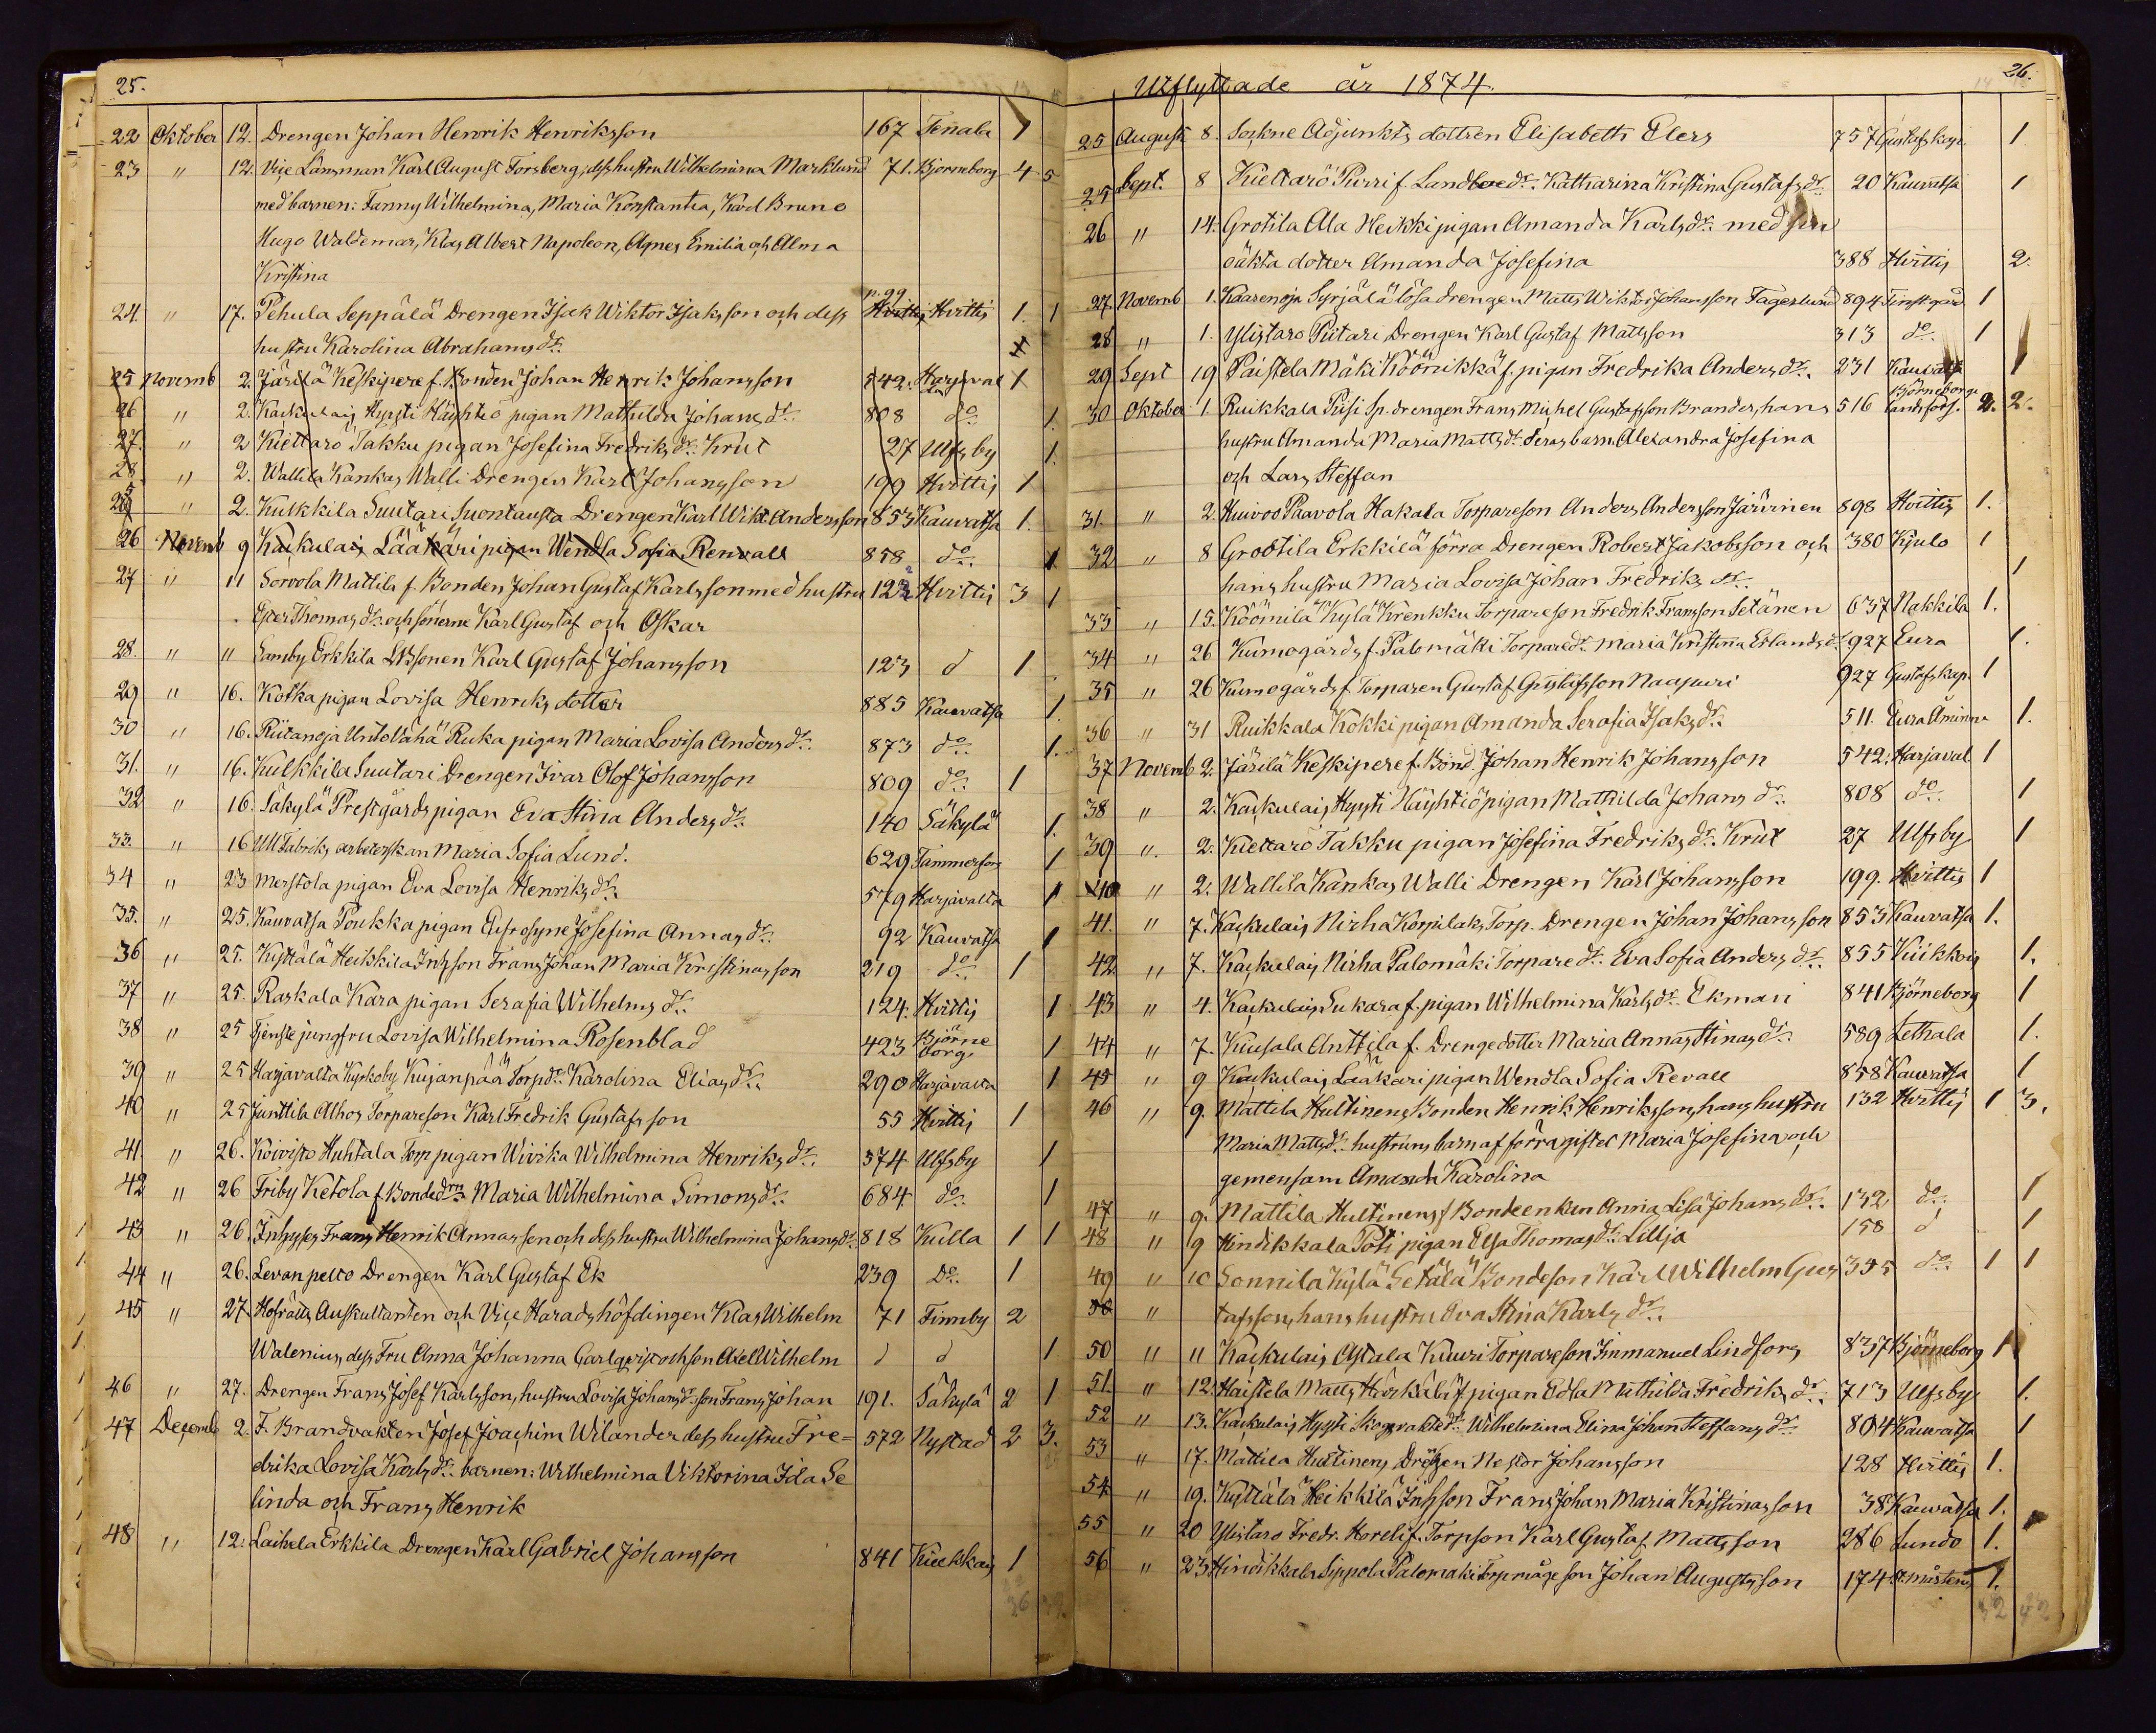 25.
22 Oktober 12. Drengen Johan Henrik Henriksson 167 Tenala 1
23 " 12. Vice Länsman Karl August Forsberg, dess hustru Wilhelmina Marklund 71. Björneborg 4 5
med barnen: Fanny Wilhelmina, Maria Konstantia, Karl Bruno
Hugo Waldemar, Klas Albert Napoleon, Agnes Emilia och Alma
Kristina
p. 99
24. " 17. Pehula Seppälä Drengen Isak Wiktor Isaksson och dess Hvittis Hvittis 1. 1
hustru Karolina Abrahams dr.
25 Novemb 2. Järilä Keskipere f. Bonden Johan Henrik Johansson 542. Harjaval 1
26 " 2. Kaskulais Hyysti Häyhtiö pigan Mathilda Johans dr. 808 do. 1.
27. " 2 Kiettarö Takku pigan Josefina Fredriks dr. Krut 27 Ulfsby 1.
28. " 2. Wallila Kankas Walli Drengen Karl Johansson 199 Hvittis 1
25 " 2. Kulkkila Suutari Suontausta Drengen Karl Wikt. Andersson 853 Kauvatsa 1.
26 Novemb 9 Kaskulais Lääkäri pigan Wendla Sofia Renvall 858 do. 1
27 " 11 Sorvola Mattila f. Bonden Johan Gustaf Karlsson med hustru 122 Hvittis 3 1
Ester Thomas dr. och sönerne Karl Gustaf och Oskar
28. " " Samby Erkkila Karl Gustaf Johansson 123 d 1
29 " 16. Kotka pigan Lovisa Henriks dotter 885 Kauvatsa 1.
30 " 16. Riitanoja Unto Vähä Ruka pigan Maria Lovisa Anders dr. 873 do. 1.
31. " 16. Kulkkila Suutari Drengen Ivar Olof Johansson 809 do. 1
32 " 16. Säkylä Prestgårds pigan Eva Stina Anders dr. 140 Säkylä 1.
33. " 16 Ull Fabriks arbeterskan Maria Sofia Lund. 629 Tammerfors 1
34 " 23 Merstola pigan Eva Lovisa Henriks dr. 579 Harjavalta 1
35. " 25. Kauvatsa Poukka pigan Eufrosyne Josefina Annas dr. 92 Kauvatsa 1
36 " 25. Kyttälä Heikkila Inhsson Frans Johan Maria Kristinas son 219 do. 1
37 " 25. Raskala Kara pigan Serafia Wilhelms dr. 124. Hvittis 1
38 " 25 Tjenste jungfru Lovisa Wilhelmina Rosenblad 423 Björneborg 1
39 " 25 Harjavalta Kyrkoby Kujanpää Torp dr. Karolina Elias dr. 290 Harjavalta 1
40 " 25 Junttila Alhos Torpareson Karl Fredrik Gustafsson 55 Hvittis 1
41. " 26. Koivisto Huhtala Torp pigan Wivika Wilhelmina Henriks dr. 374 Ulfsby 1
42 " 26 Friby Ketola f. Bonde drn Maria Wilhelmina Simons dr. 684 do. 1
43 " 26. Inhyses Frans Henrik Annas son och dess hustru Wilhelmina Johans dr. 818 Kulla 1 1
44 " 26. Levanpelto Drengen Karl Gustaf Ek 239 Do. 1
45 " 27. Hofrätts Auskultanten och Vice Haradshöfdingen Klas Wilhelm 71 Finnby 2
Walenius, dess Fru Anna Johanna Carlqvist och son Axel Wilhelm d d 1
46 " 27. Drengen Frans Josef Karlsson, hustru Lovisa Johans dr. son Frans Johan 191. Säkylä 2 1
47 Decemb 2. F. Brandvakten Josef Joachim Wilander dess hustru Fre= 572 Nystad 2 3.
drika Lovisa Karls dr. barnen: Wilhelmina Viktorina Ida Se
linda och Frans Henrik
48 " 12. Laihela Erkkila Drengen Karl Gabriel Johansson 841 Kiukkais 1
36
Utflyttade år 1874.
26.
25 Augusti 8. Sockne Adjunkts dottren Elisabeth Elers 757 Gustafs kap. 1
25 Sept. 8 Kiettarö Purri f. Landboe dr. Katharina Kristina Gustafs dr. 20 Kauvatsa 1
26 " 14. Grotila Ala Heikki pigan Amanda Karls dr. med sin
oäkta dotter Amanda Josefina 388 Hvittis 2.
27. Novemb 1. Kaarenoja Syrjälä lösa drengen Matts Wiktor Johansson Fagerlund 894 1
28 " 1. Ylistaro Piitari Drengen Karl Gustaf Mattsson 313 do. 1
29 Sept 19 Paistela Mäki Köönikkä f. pigan Fredrika Anders dr. 231 Kauvatsa 1
30 Oktober 1 Ruikkala Piisi Sp. drengen Frans Michel Gustafsson Brander, hans 516 Björneborgs landsförs. 2. 2.
hustru Amanda Maria Matts dr. deras barn Alexandra Josefina
och Lars Steffan
31. " 2. Huivoo Paavola Hakala Torpareson Anders Andersson Järvinen 898 Hvittis 1.
32 " 8 Grootila Erkkilä förra Drengen Robert Jakobsson och 380 Kjulo 1
hans hustru Maria Lovisa Johan Fredriks dr. 1
33 " 15. Köömilä Kylä Krenkku Torpareson Fredrik Fransson Setänen 637 Nakkila 1.
34 " 26 Kumogårds f. Palomäki Torpare dr. Maria Kristina Erlands dr. 927 Eura 1.
35 " 26 Kumogårds f. Torparen Gustaf Gustafsson Naapuri 927 Gustafs kap. 1
36 " 31 Ruikkala Kokki pigan Amanda Serafia Isaks dr. 511. Eura Åminne 1.
37 Novemb 2. Järilä Keskipere f. Bond. Johan Henrik Johansson 542. Harjaval 1
38 " 2. Kaskulais Hyysti Häyhtiö pigan Mathilda Johans dr. 808 do. 1
39 ". 2. Kiettarö Takku pigan Josefina Fredriks dr. Krut 27 Ulfsby 1
40 " 2. Wallila Kankas Walli Drengen Karl Johansson 199. Hvittis 1
41. " 7. Kaskulais Nirha Korpilaks Torp. Drengen Johan Johansson 853 Kauvatsa 1.
42 " 7. Kaskulais Nirha Palomäki Torpare dr. Eva Sofia Anders dr. 855 Kiikkois 1.
43 " 4. Kaskulais Sukara f. pigan Wilhelmina Karls dr. Ekman 841 Björneborg 1
44 " 7. Kuusala Anttila f. Drengedotter Maria Annas Stinas dr. 589 Lethala 1.
45 " 9 Kaskulais Lääkari pigan Wendla Sofia Revall 858 Kauvatsa 1
46 " 9. Mattila Hultinens Bonden Henrik Henriksson, hans hustru 132 Hvittis 1 3.
Maria Matts dr. hustruns barn af förra giftet Maria Josefina och
gemensam Amanda Karolina
47 " 9. Mattila Hultinens f Bondeenkan Anna Lisa Johans dr. 132 do. 1
48 " 9 Hindikkala Poti pigan Elsa Thomas dr. Lillja 158 d 1
49 " 10 Sonnila Kylä Setälä Bondeson Karl Wilhelm Gus 355 do. 1 1
50 " tafsson, hans hustru Eva Stina Karls dr.
50 " 11 Kaskulais Astala Kuuri Torpareson Immanuel Lindfors 837 Björneborg 1
51. " 12. Haistela Matts Härkälä f pigan Edla Mathilda Fredriks dr. 713 Ulfsby 1.
52 " 13. Kaskulais Hyysti Skogsvakte dr. Wilhelmina Elina Johan Steffans dr. 804 Kauvatsa 1
53 " 17. Mattila Hultinens Drengen Nestor Johansson 128 Hvittis 1.
54 " 19. Kyttälä Heikkilä Inhsson Frans Johan Maria Kristinas son 38 Kauvatsa 1.
55 " 20 Ylistaro Fredr. Horeli f. Torpson Karl Gustaf Mattsson 286 Lundo 1.
56 " 23 Hindikkala Sippola Palomäki Torp måge son Johan Augustsson 174 St. Mårtens 1.
32 42